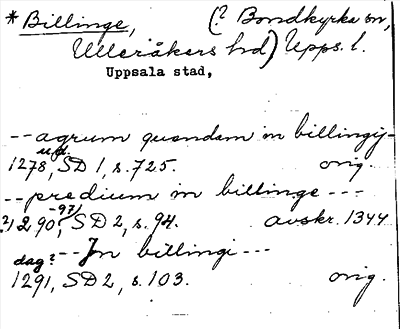 * Billinge, (? Bondkyrka sn,
Ulleråkers hd) Upps. l.
Uppsala stad,
-- agrum quondam in billingij-
u.d.
1278, SD 1, s. 725. orig.
-- predium in billinge ---
-97/
?/1290, SD 2, s. 94. avskr. 1344
dag? -- Jn billingi ---
1291, SD2, s. 103. orig.